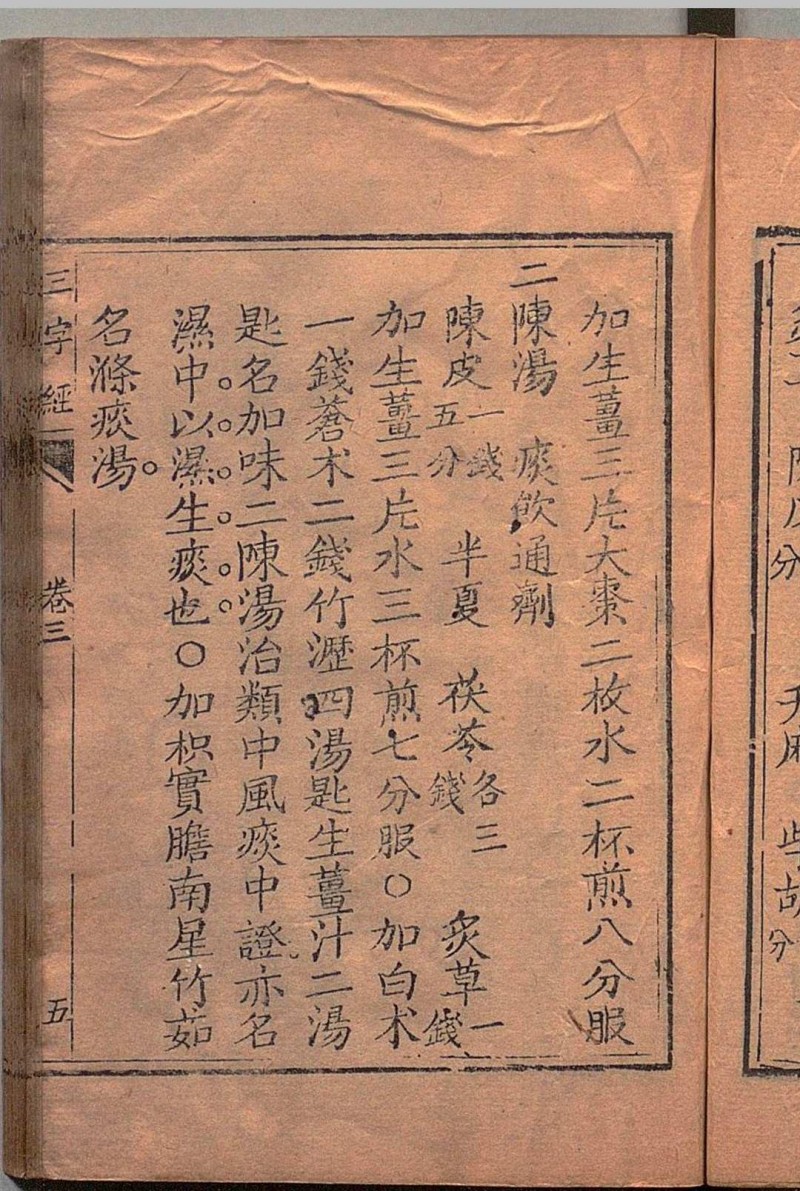 加生薑三片大棗二枚水二杯煎八分服
二陳湯 痰飲通劑
陳皮一錢五分 半夏 茯苓各三錢 炙草一錢
加生薑三片水三杯煎七分服○加白朮
一錢蒼朮二錢竹瀝四湯匙生薑汁二湯
匙名加味二陳湯治類中風痰中證亦名
濕中以濕生痰也○加枳實膽南星竹茹
名滌痰湯
三字經 卷三 五